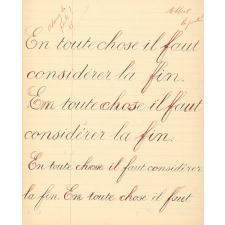 Albert
En toute chose il faut
considérer la fin.
En toute chose il faut
considérer la fin.
En toute chose il faut considérer
la fin. En toute chose il faut